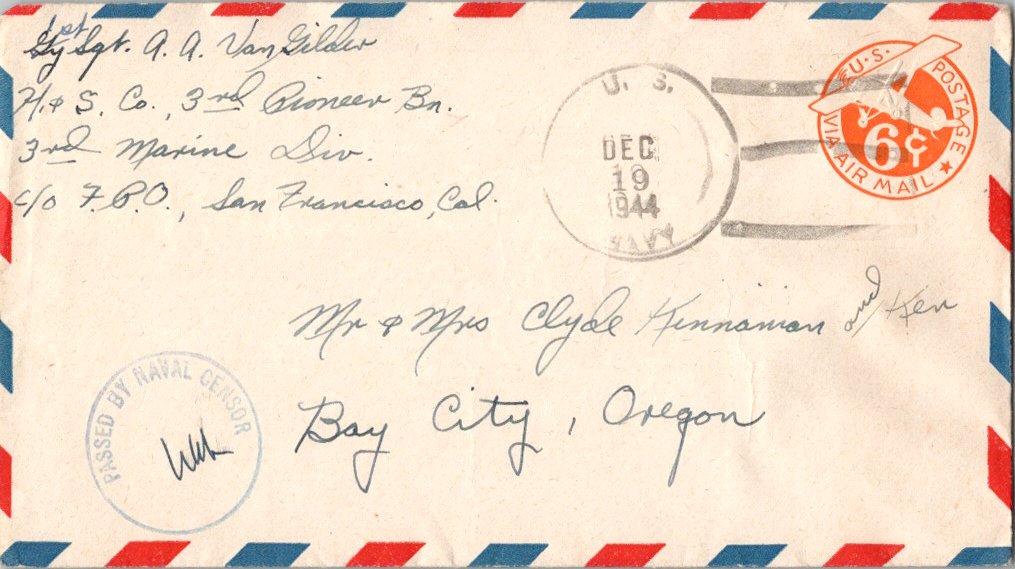 1st Sgt. A. A. Van Gilder
H. & S. Co., 3rd Pioneer Bn.
3rd Marine Div.
c/o F.P.O., San Francisco, Cal.
U. S.
DEC
19
1944
NAVY
U.S. POSTAGE
6¢
VIA AIR MAIL
Mr & Mrs Clyde Kinnaman and Ken
Bay City, Oregon
PASSED BY NAVAL CENSOR